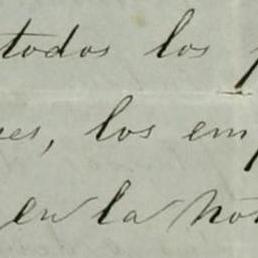 todos los
los em
en la